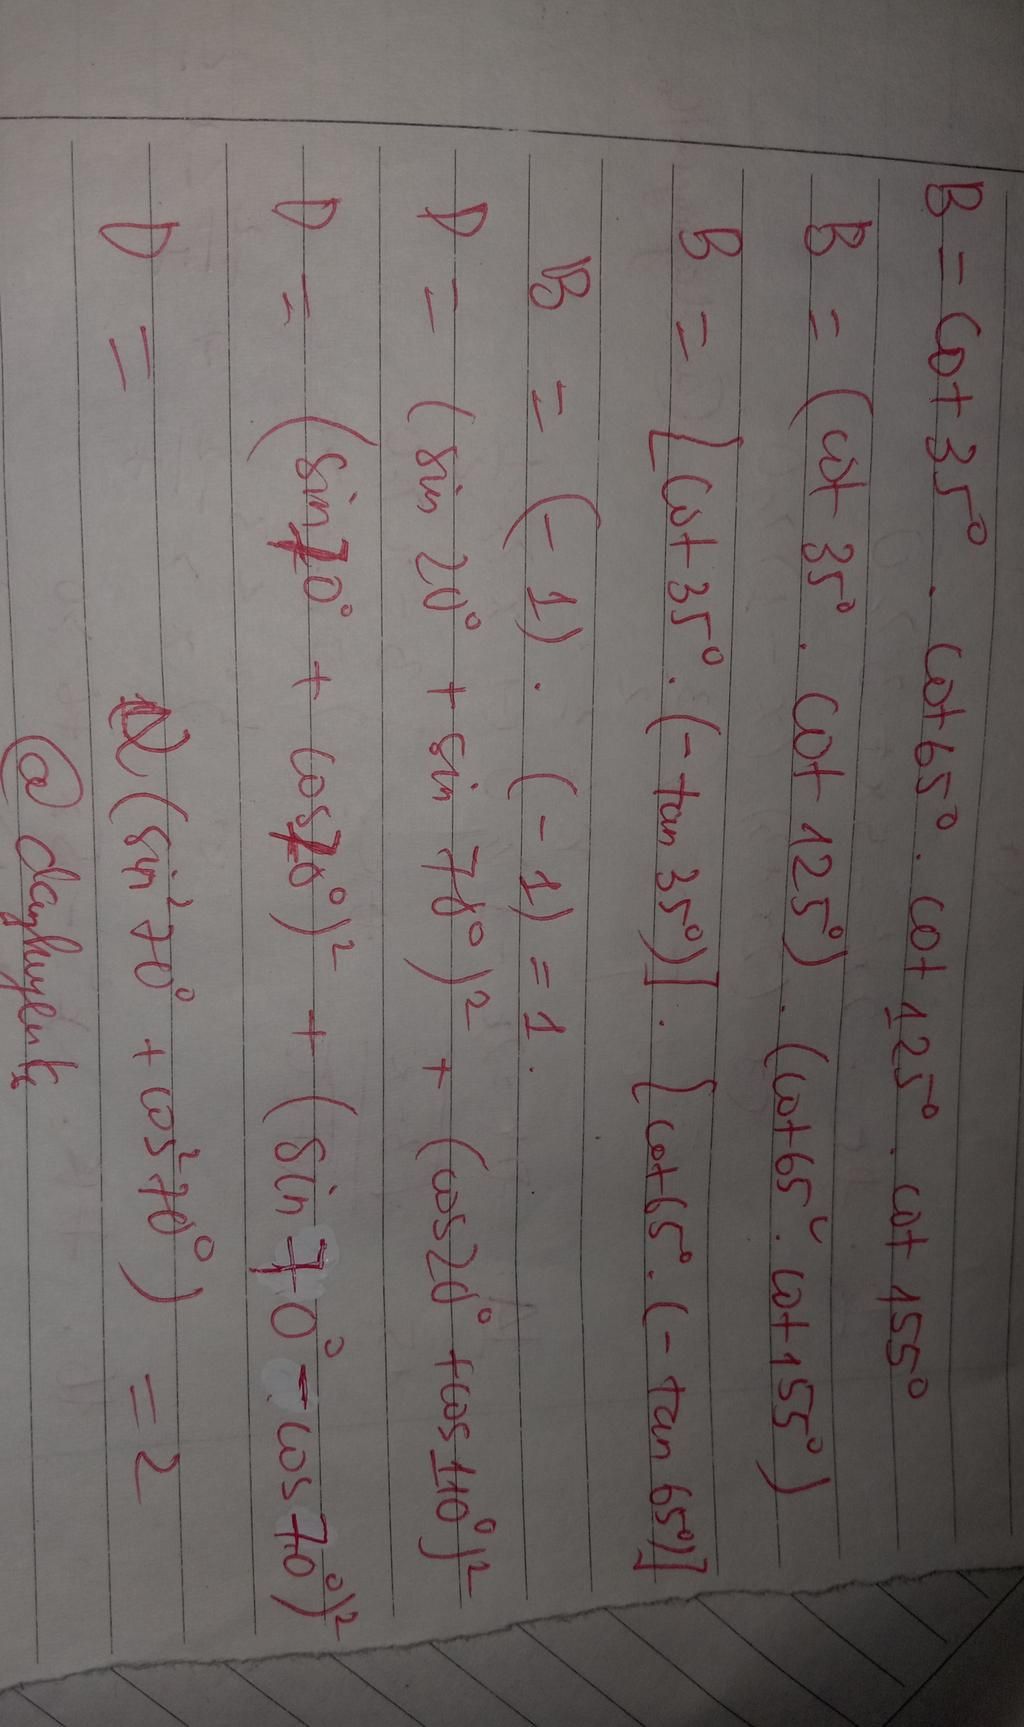 B = cot 35° . cot 65° . cot 125° . cot 155°
B = (cot 35° . cot 125°) . (cot 65° . cot 155°)
B = [cot 35° . (- tan 35°)] . [cot 65° . (- tan 65°)]
B = (-1) . (-1) = 1.
D = (sin 20° + sin 70°)² + (cos 20° + cos 110°)²
D = (sin 70° + cos 70°)² + (sin 70° - cos 70°)²
D = 2 (sin² 70° + cos² 70°) = 2